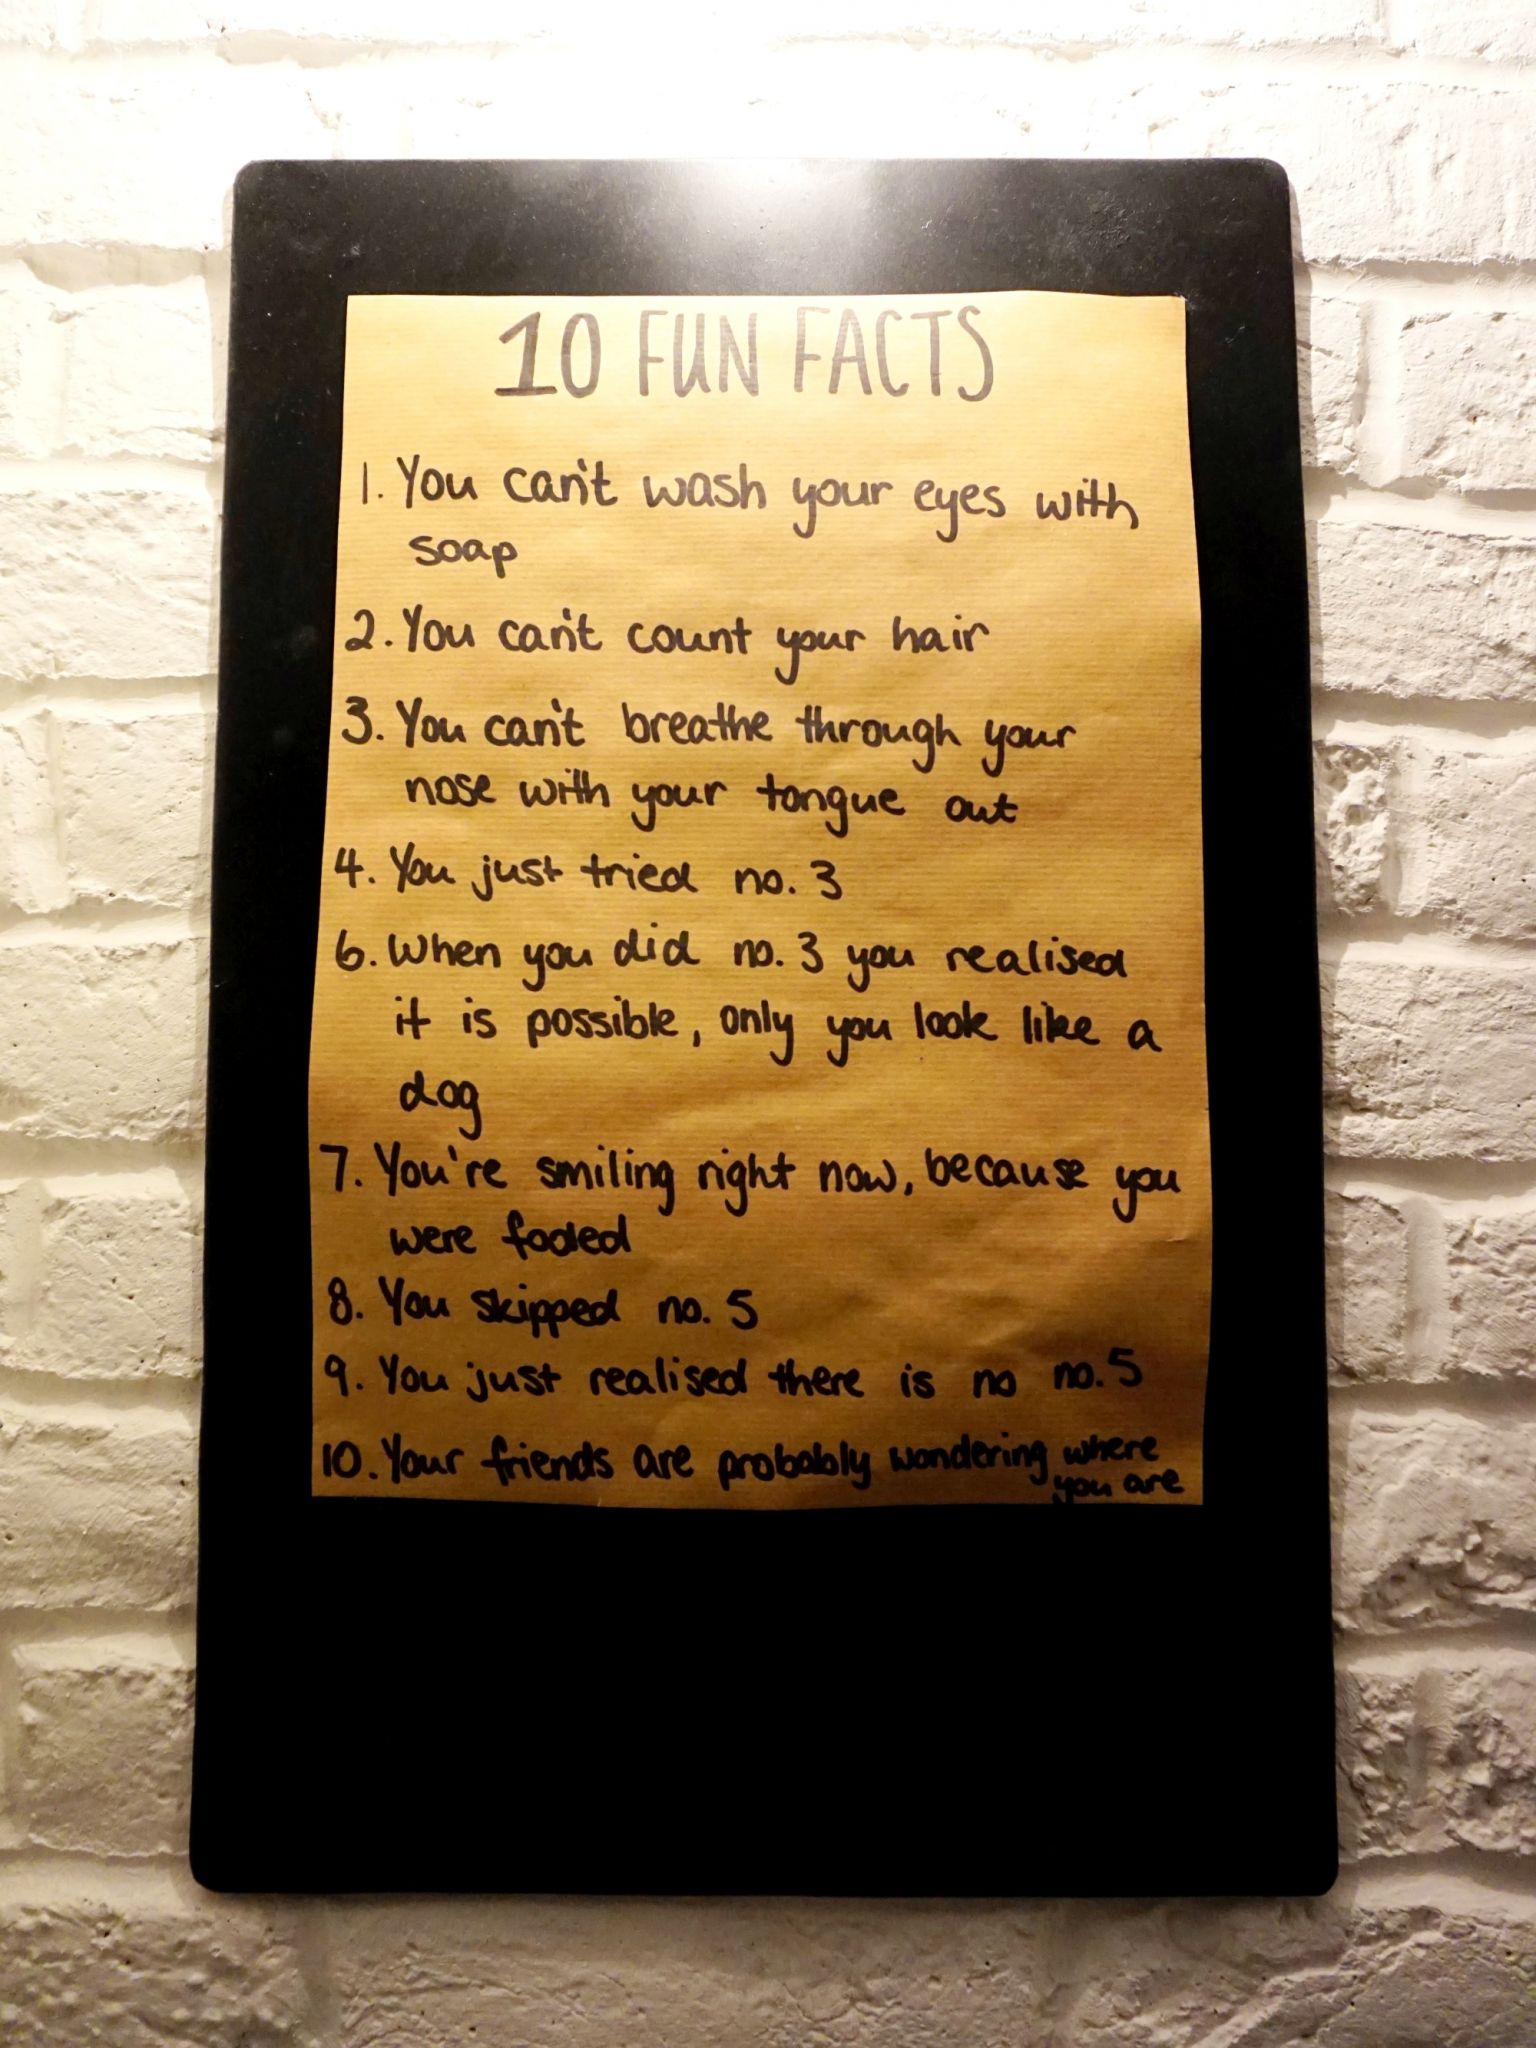 10 FUN FACTS
1. You can't wash your eyes with
soap
2. You can't count your hair
3. You can't breathe through your
nose with your tongue out
4. You just tried no. 3
6. When you did no. 3 you realised
it is possible, only you look like a
dog
7. You're smiling right now, because you
were fooled
8. You skipped no. 5
9. You just realised there is no no. 5
10. Your friends are probably wondering where
you are